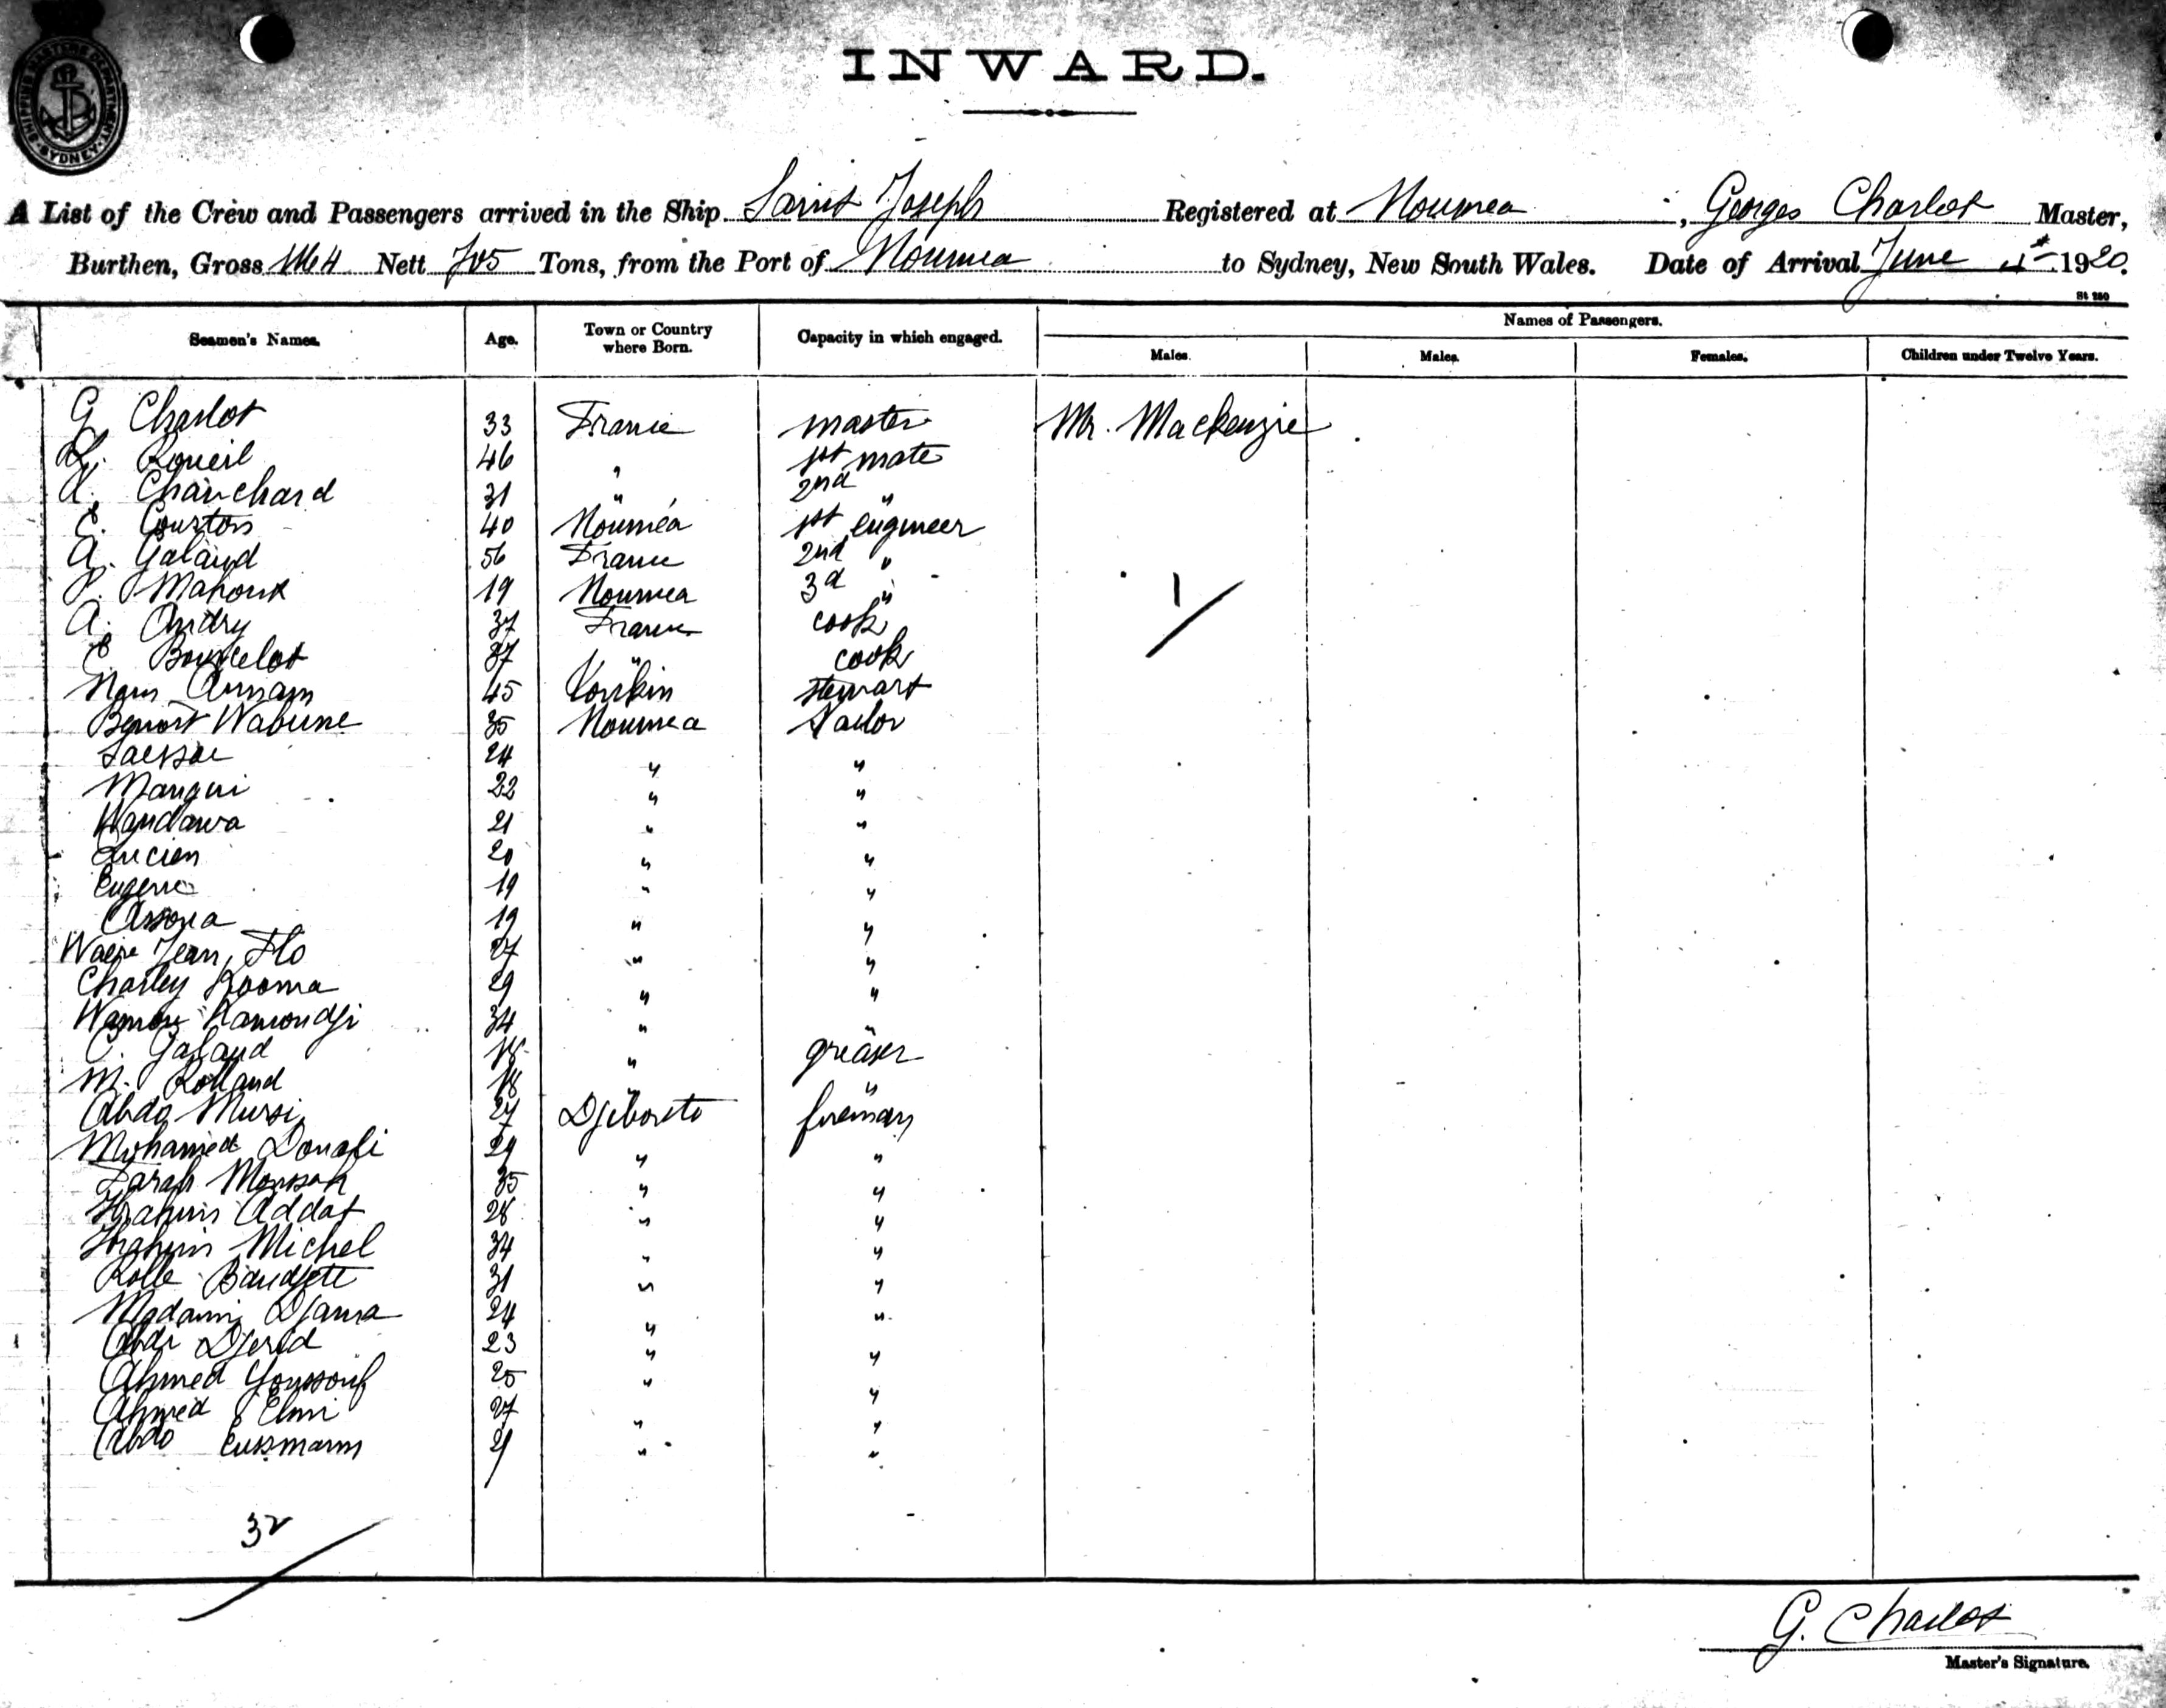 SHIPPING MASTERS DEPARTMENT SYDNEY
INWARD.
A List of the Crew and Passengers arrived in the Ship Saint Joseph Registered at Noumea, Georges Charlot Master,
Burthen, Gross 1164 Nett 705 Tons, from the Port of Noumea to Sydney, New South Wales. Date of Arrival June 1920.
St 260
Seamen's Names. Age. Town or Country where Born. Capacity in which engaged. Names of Passengers.
Males. Males. Females. Children under Twelve Years.
G. Charlot 33 France master Mr. Mackenzie
46 " 1st mate
Chanchard 31 " 2nd "
E. 40 Nouméa 1st engineer
A. Galaud 56 France 2nd "
P. 19 Noumea 3d "
A. Andry 37 France cook
E. 37 " cook
Nam Annam 45 Tonkin stewart
Benoit Wabune 35 Noumea Sailor
24 " "
Mangui 22 " "
Wandawa 21 " "
Lucien 20 " "
Eugene 19 " "
Assona 19 " "
Jean, Flo 27 " "
Charley Kooma 29 " "
Wamou Kamoudji 34 " "
C. Galaud 18 " greaser
M. Rolland 18 " "
Abdo Mursi 27 fireman
Mohamed Douali 29 " "
Farah Moussah 35 " "
Ibrahim Addat 28 " "
Ibrahim Michel 34 " "
Roble 31 " "
Madami Djama 24 " "
Abdi Djerld 23 " "
Ahmed Youssouf 25 " "
Ahmed Elmi 27 " "
Abdo 21 " "
1
32
G. Charlot
Master's Signature.